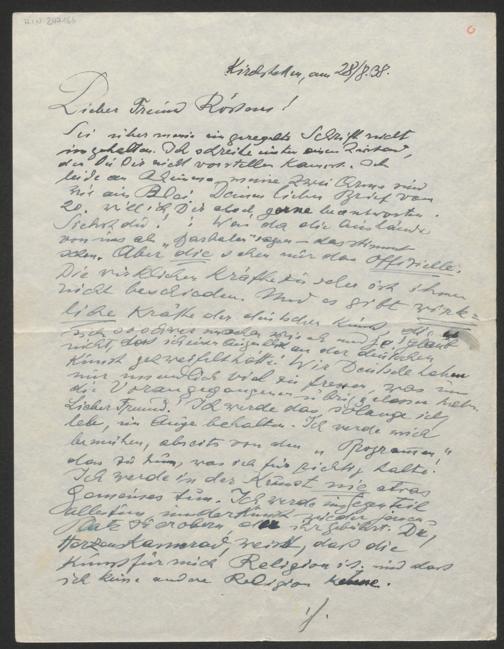 Kirchstetten, am 28/8.38.
Lieber Freund Röttens!
Sei über meine ungeregelte Schrift nicht
ungehalten. Ich schreibe unter einem Zustand,
den Du Dir nicht vorstellen kannst. Ich
leide an Rheuma, meine zwei Arme sind
wie aus Blei. Deinen lieben Brief vom
20. will ich Dir aber gerne beantworten.
Siehst du! Was da die Ausländer
von uns als sagen – das stimmt
schon. Aber die sehen nur das Offizielle.
Die wirklichen Kräfte zu sehen ist ihnen
nicht beschieden. Und es gibt wirk-
liche Kräfte der deutschen Kunst, die
nicht, dass ich einen Augenblick an der deutschen
Kunst gezweifelt hätte! Wir Deutsche haben
nur unendlich viel zu fressen, was uns
die Vorangegangenen übrig gelassen haben.
Lieber Freund! Ich werde das, solange ich
lebe, im Auge behalten. Ich werde mich
bemühen, abseits von den „Programmen"
das zu tun, was ich für richtig halte!
Ich werde in der Kunst nie etwas
Gemeines tun. Ich werde im Gegenteil
alles tun, um der Kunst wieder jenen
Platz zu erobern, der ihr gebührt. Du,
Herzenskamerad, weisst, dass die
Kunst für mich Religion ist und dass
ich keine andere Religion kenne.